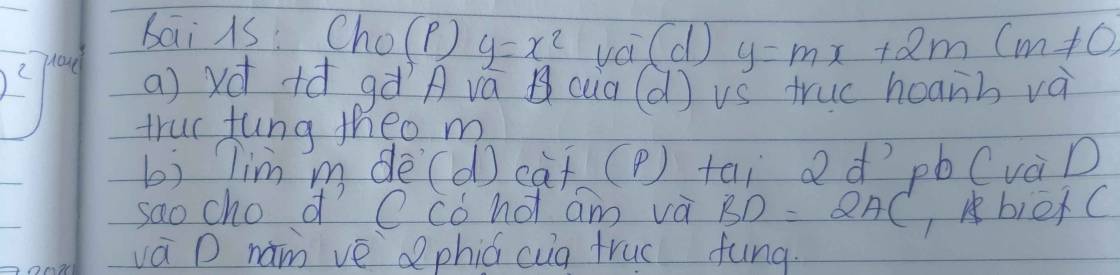 Bài 15: Cho (P) y=x² và (d) y=mx+2m (m≠0
a) xđ tđ gđ' A và B của (d) vs trục hoành và
trục tung theo m
b) Tìm m để (d) cắt (P) tại 2 đ' pb C và D
sao cho đ' C có hđ âm và BD = 2AC, biết C
và D nằm về 2 phía của trục tung.